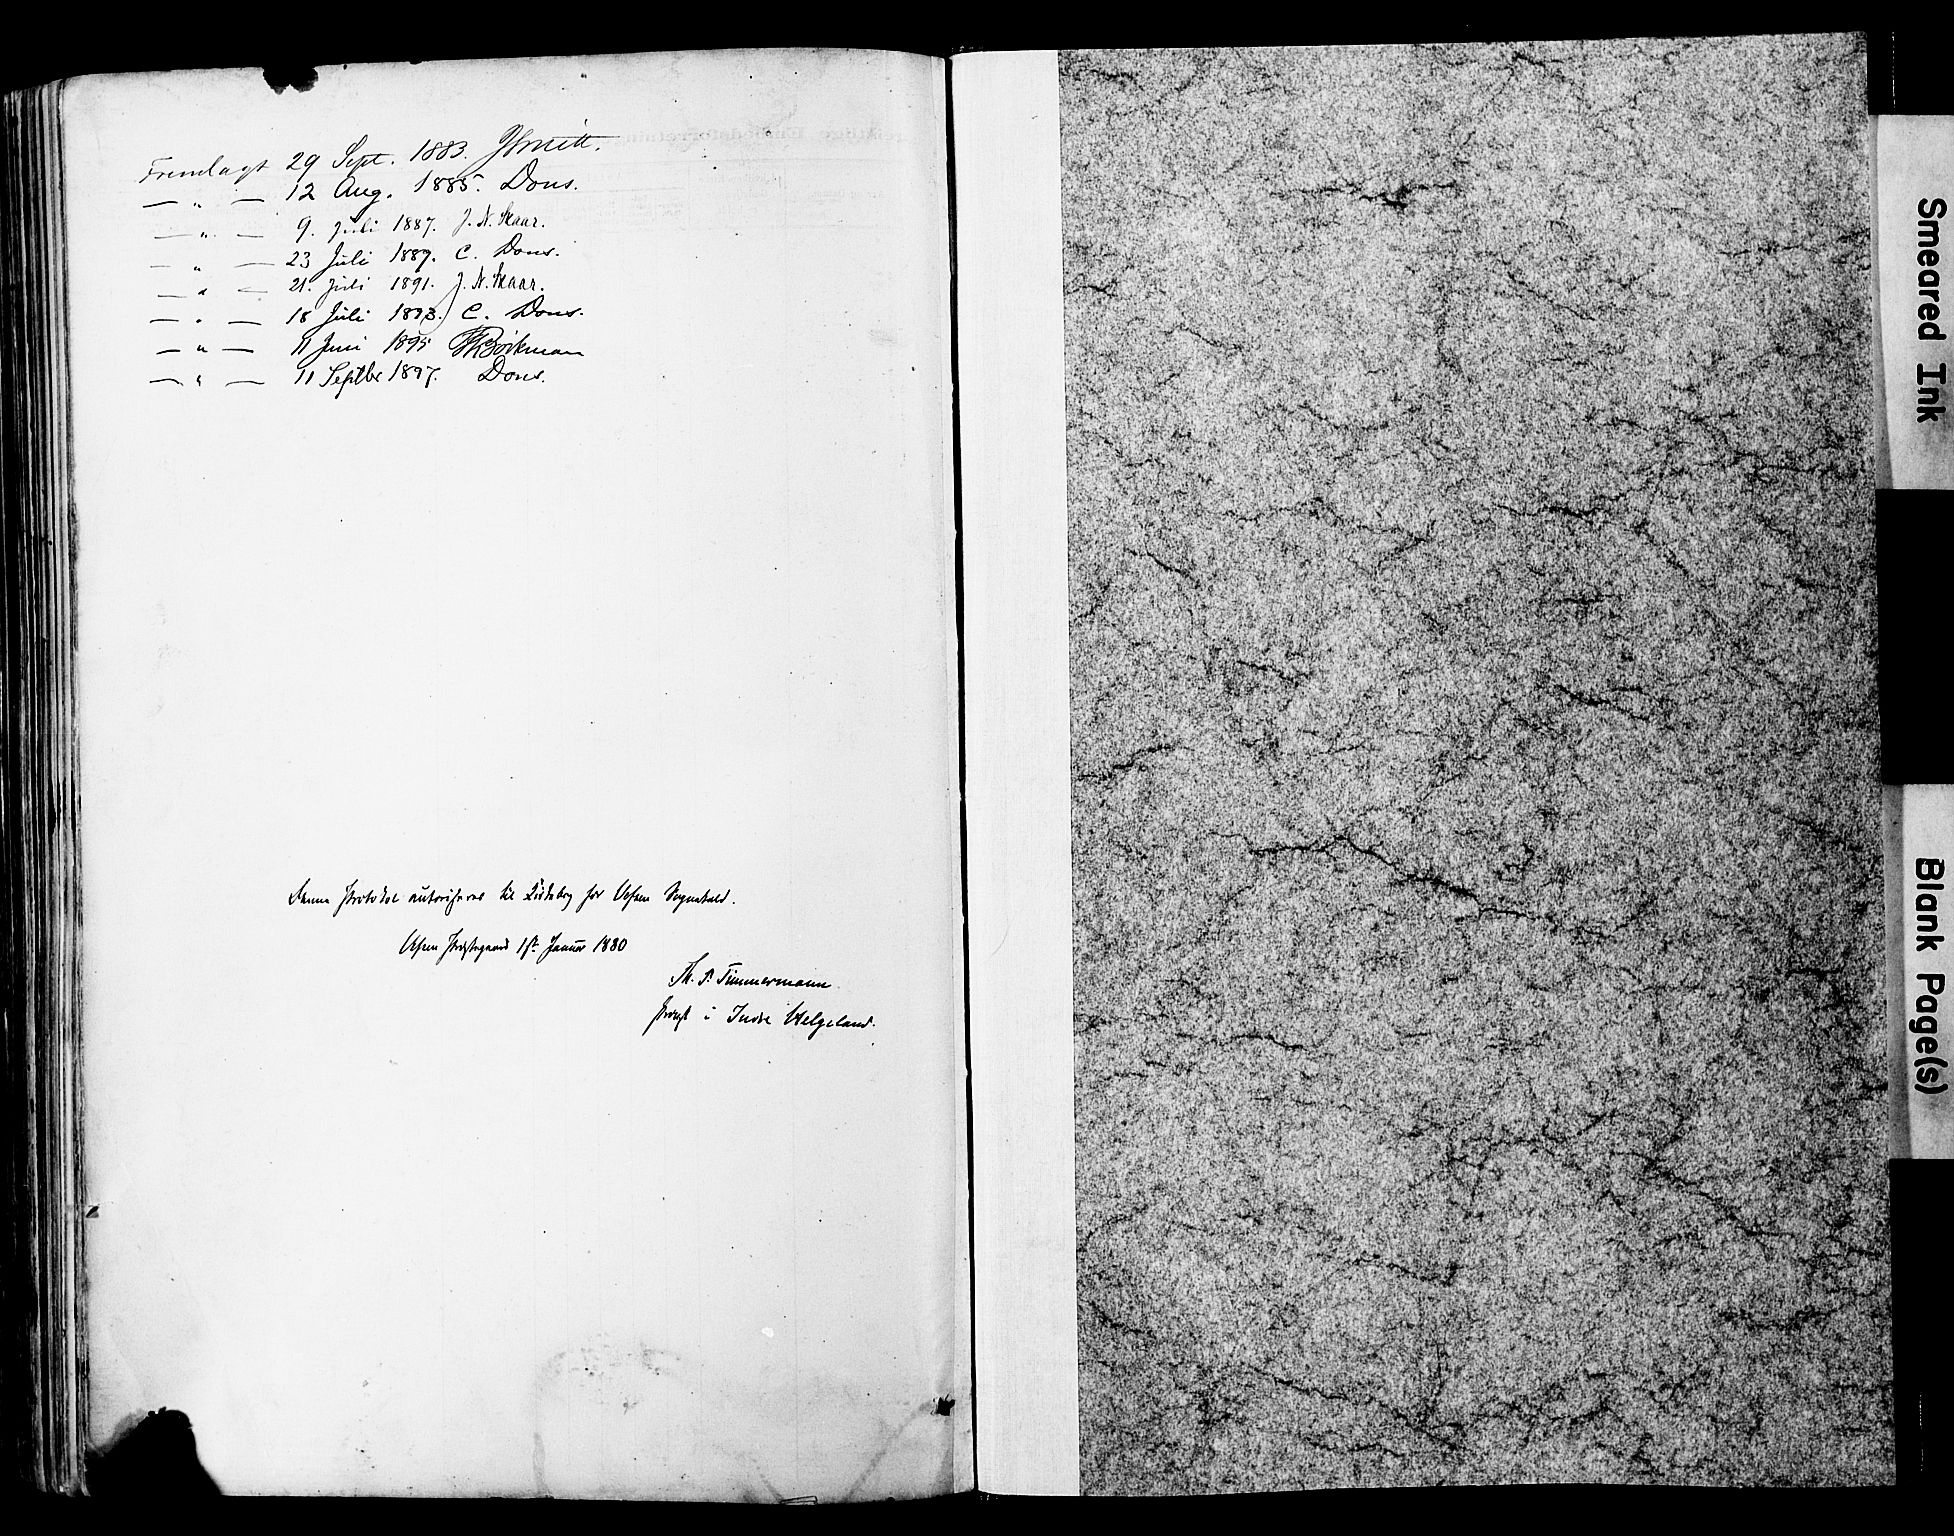 Fremlagt 29 Sept. 1883. JSmitt.
— " — 12 Aug. 1885. Dons.
— " — 9. Juli 1887. J. N. Skaar.
— " — 23 Juli 1889. C. Dons.
— " — 21. Juli 1891. J. N. Skaar.
— " — 18 Juli 1893. C. Dons.
— " — 11 Juni 1895 Böckman
— " — 11 Septbr 1897. Dons.
Denne Protokol autoriseres til Kirkebog for Vefsen Sognekald.
Vefsen Præstegaard 1ste Januar 1880
Th. P. Timmermann
Provst i Indre Helgeland.
Smeared Ink
Blank Page(s)